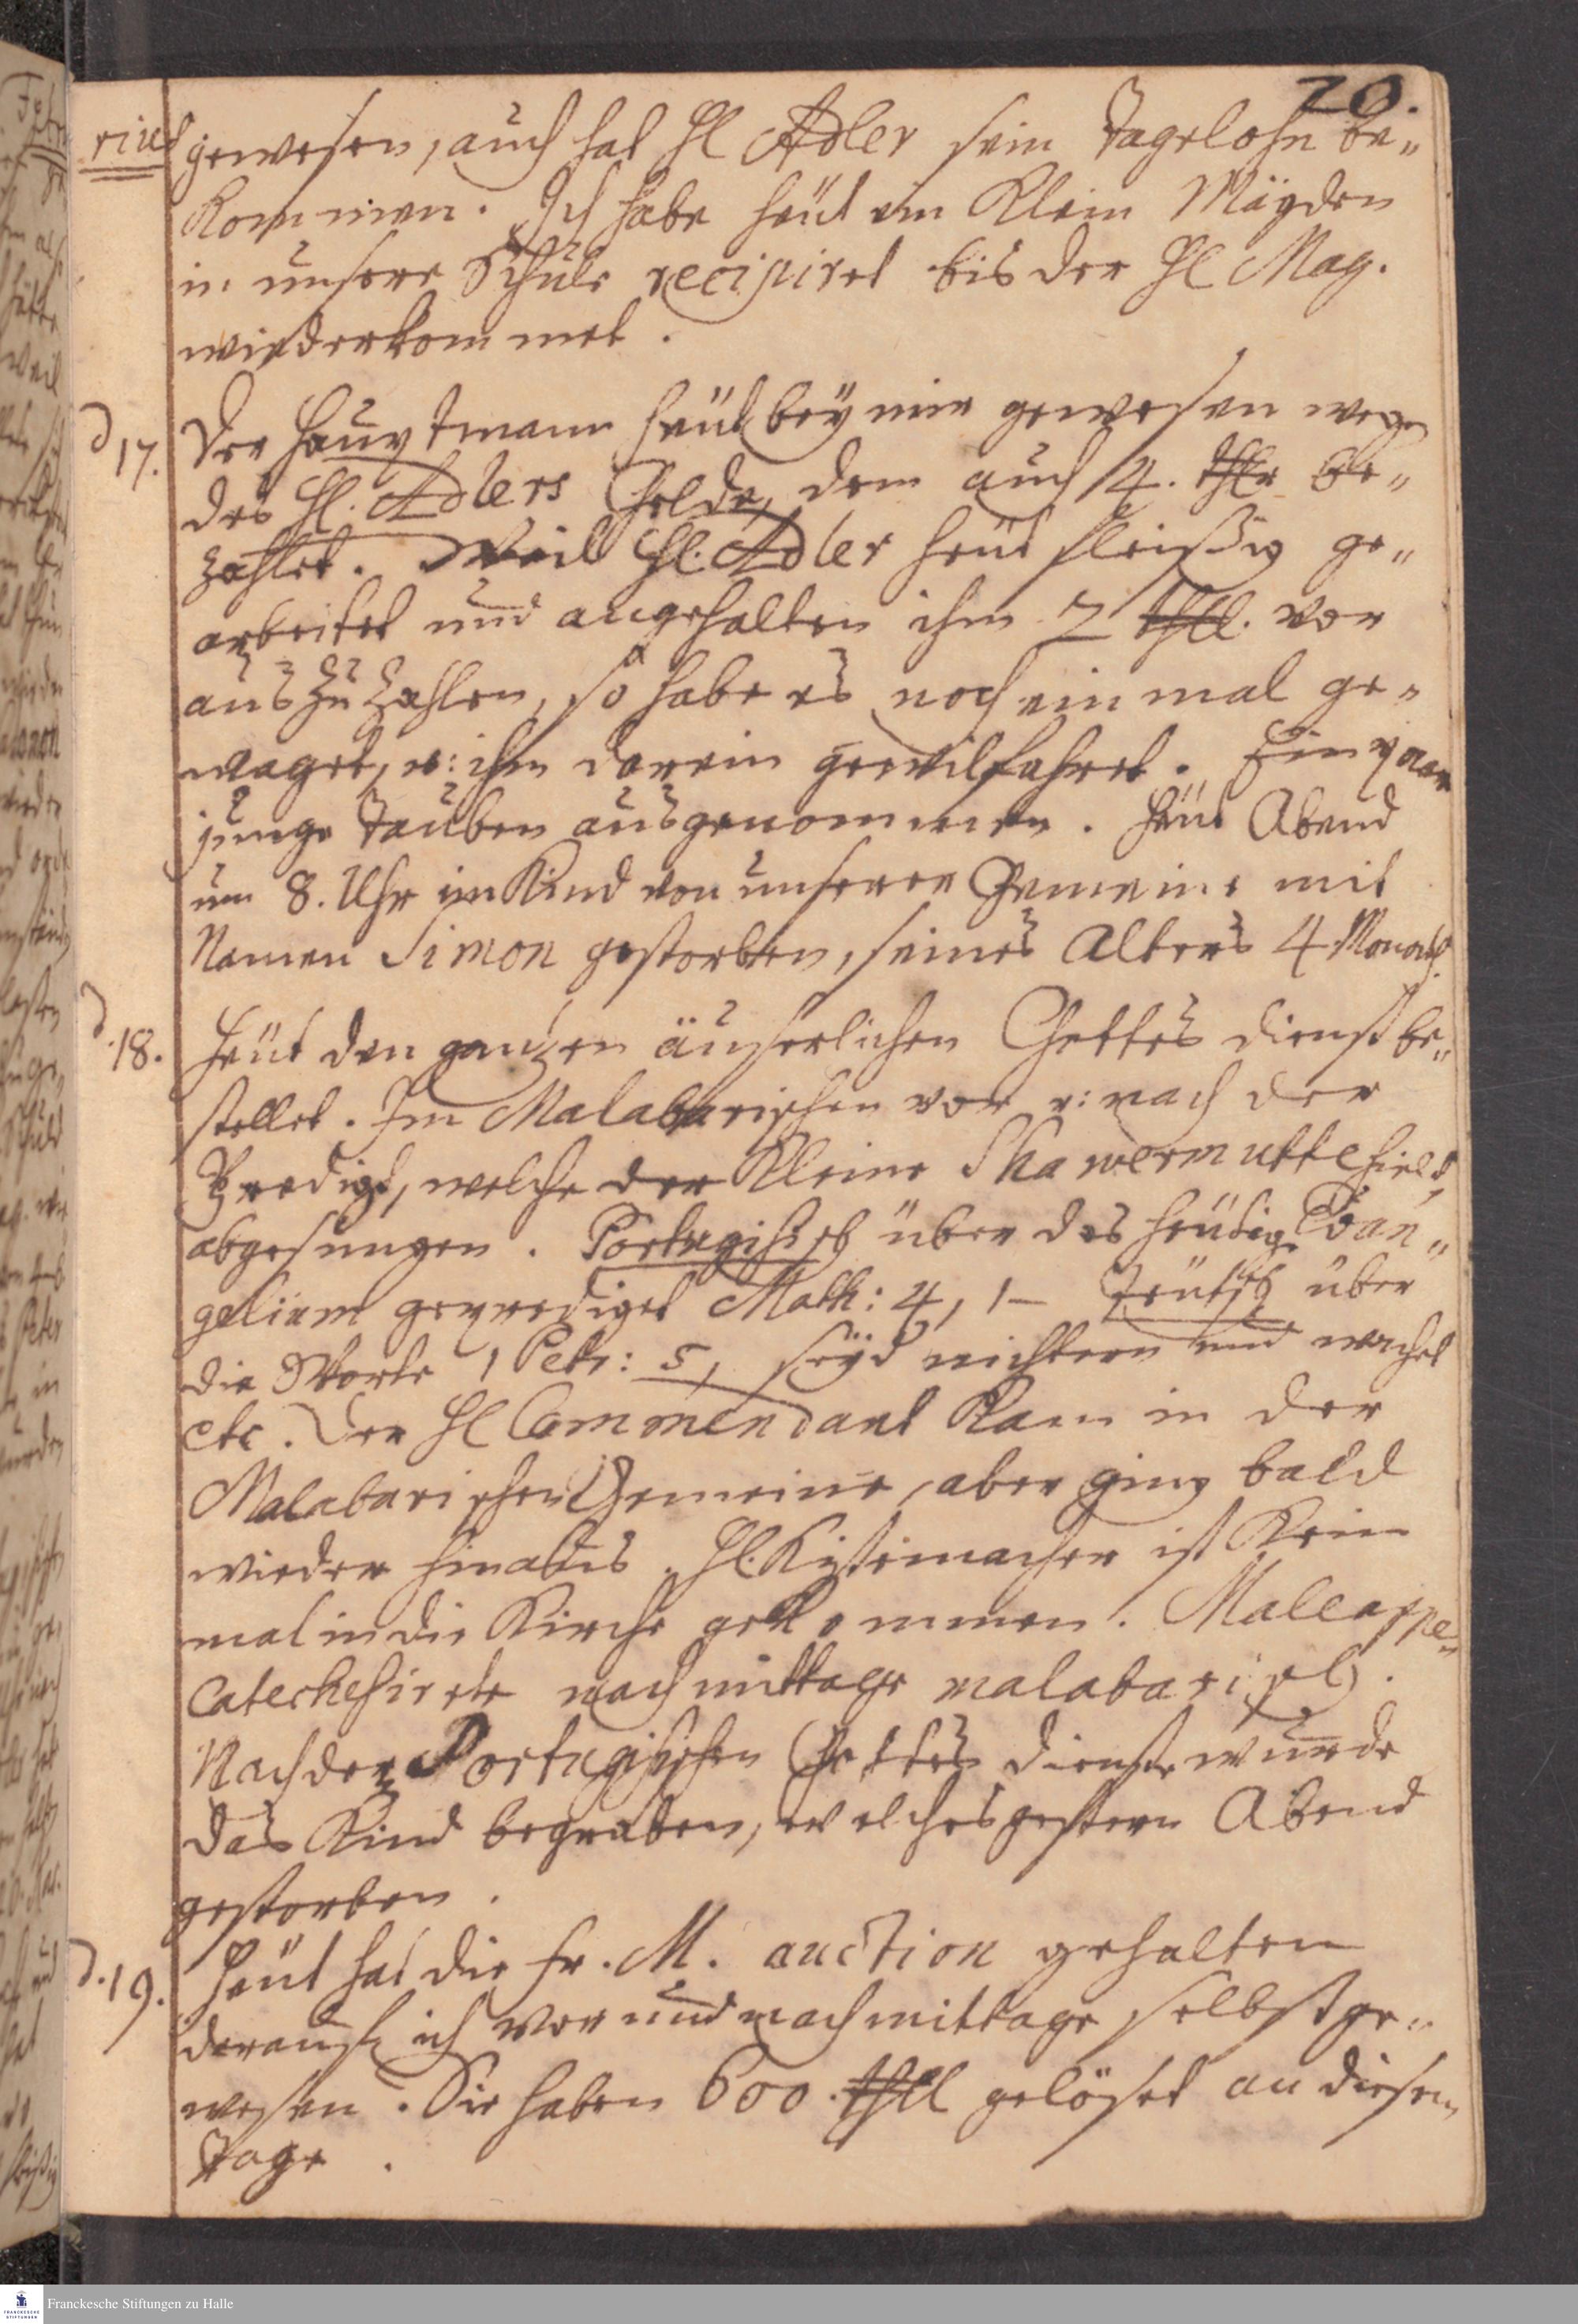 20.
rius
gewesen, auch hat Hl Adler sein tagelohn be„
kommen. Ich habe heut ein klein Mägden
in unsere Schule recipiret bis der Hl Mag.
wiederkommet.
d 17. Der Hauptmann heut bey mir gewesen wegen
des Hl. Adlers Gelde, dem auch 4. thlr be„
zahlet. Weil Hl. Adler heut fleißig ge„
arbeitet und angehalten ihm 2 thll. vor
aus zu zahlen, so habe es noch ein mal ge„
waget, u: ihm darein gewilfahret. Ein paar
junge Tauben ausgenommen. Heut Abend
um 8. Uhr ein Kind von unserer Gemeine mit
Namen Simon gestorben, seines Alters 4 Monath.
d. 18. Heut den gantzen äuserlichen Gottes dienst be„
stellet. Im Malabarischen vor u: nach der
Predigt, welche der kleine hielt,
abgesungen. Portugisisch über das heutige Evan„
gelium geprediget Matth: 4, 1– Teutsch über
die Worte 1 Petr: 5, seyd nichtern und wachet
etc. Der Hl Commendant kam in der
Malabarischen Gemeine, aber ging bald
wieder hinaus. Hl. Kistemacher ist kein
mal in die Kirche gekommen. Maleappe„
catechesirete nachmittage malabarisch.
Nach der Portugisischen Gottes dienste wurde
das Kind begraben, welches gestern Abend
gestorben.
d. 19. Heut hat die Fr. M. auction gehalten
darauf ich vor und nachmittage selbst ge„
wesen. Sie haben 600. thll gelöset an diesem
tage.
Franckesche Stiftungen zu Halle